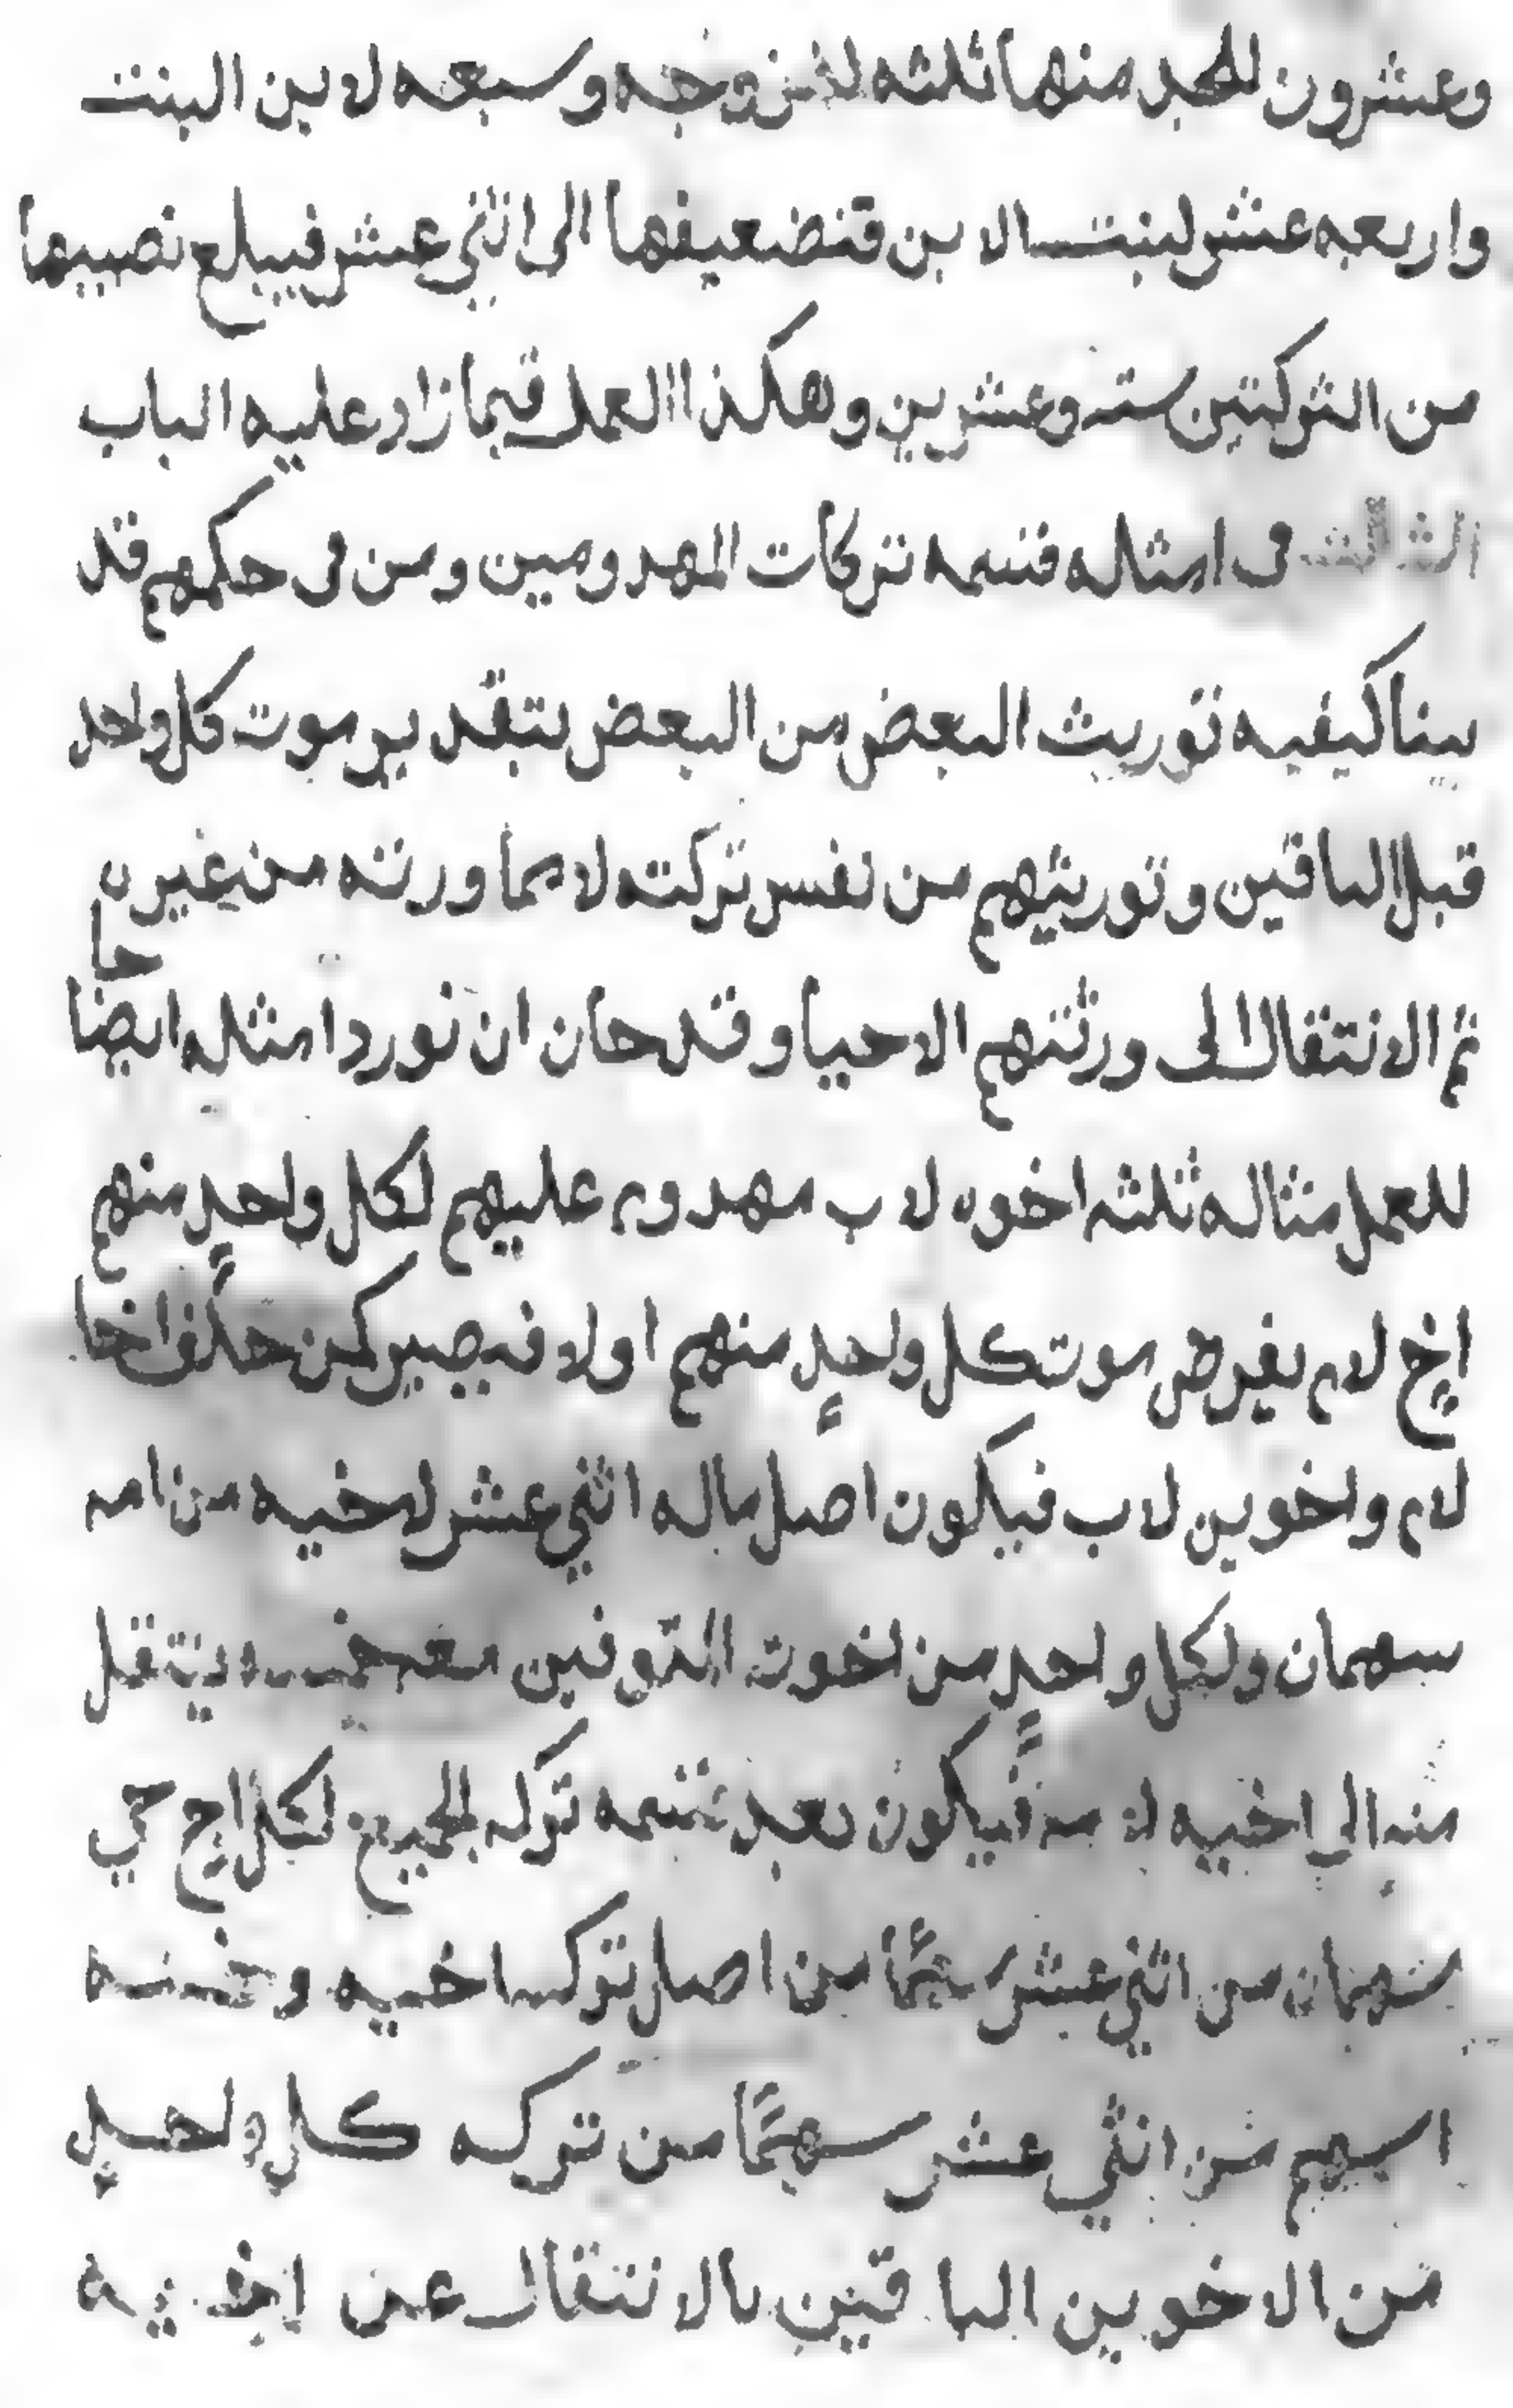 وعشرون للجد منها ثلثه لزوجه وسبعه لابن البنت
واربعه عشر لبنت الابن فنضعيفها الى اثني عشر فيبلغ نصيبها
من التركتين سته وعشرين وهكذا العمل فيما زاد عليه الباب
الثالث فى امثله قسمه تركات المهدومين ومن فى حكمهم قد
بينا كيفيه توريث البعض من البعض بتقدير موت كل واحد
قبل الباقين وتوريثهم من نفس تركته لا مما ورثه من غيره
ثم الانتقال الى ورثتهم الاحيا وقد حان ان نورد امثله ايضاحا
للعمل مثاله ثلثه اخوه لاب مهدوم عليهم لكل واحدٍ منهم
اخ لام يفرض موت كل واحدٍ منهم اولا فيصير كمن خلف اخا
لام واخوين لاب فيكون اصل ماله اثني عشر لاخيه من امه
سهمان ولكل واحدٍ من اخوته المتوفين معه خمسه ينتقل
منه الي اخيه لامه فيكون بعد قسمه تركه الجميع لكل اخ حي
سهمان من اثني عشر سهمًا من اصل تركه اخيه وخمسه
اسهم من اثني عشر سهمًا من تركه كل واحدٍ
من الاخوين الباقين بالانتقال عن اخيه